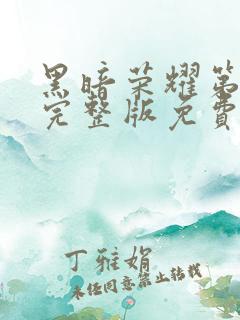 黑暗荣耀第
完整版免费
丁雅娟
未经同意禁止转载